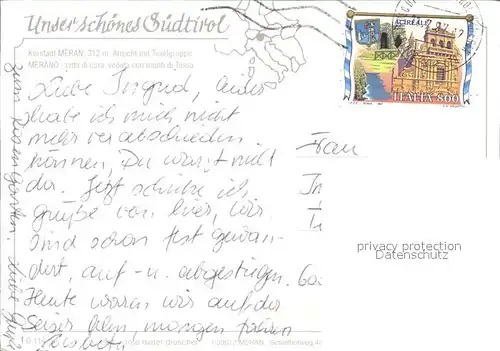 Unser schönes Südtirol
Kurstadt MERAN 312 m. Ansicht mit Texelgruppe
MERANO - città di cura, veduta con monti di Tessa
ACIREALE
ITALIA 800
Liebe Ingrud, leider
habe ich mich nicht
mehr verabschieden
können, Du warst nicht
da. Jetzt schicke ich
grüße von hier, wir
sind schon fest gewan-
dert, auf - u. abgestiegen.
Heute waren wir auf der
Seiser Alm, morgen fahren
zum Rosengarten. Liebe Grüße
Frau
privacy protection
Datenschutz
MERAN